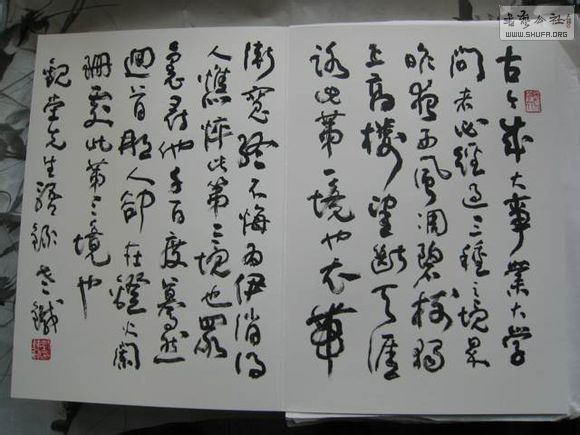 古今成大事業大学
問者必經過三種之境界
昨夜西風凋碧樹獨
上高樓望斷天涯
路此第一境也衣帶
漸寬終不悔為伊消得
人憔悴此第二境也眾
裏尋他千百度驀然
迴首那人卻在燈火闌
珊處此第三境也
觀堂先生語錄 老鐵
WWW.SHUFA.ORG